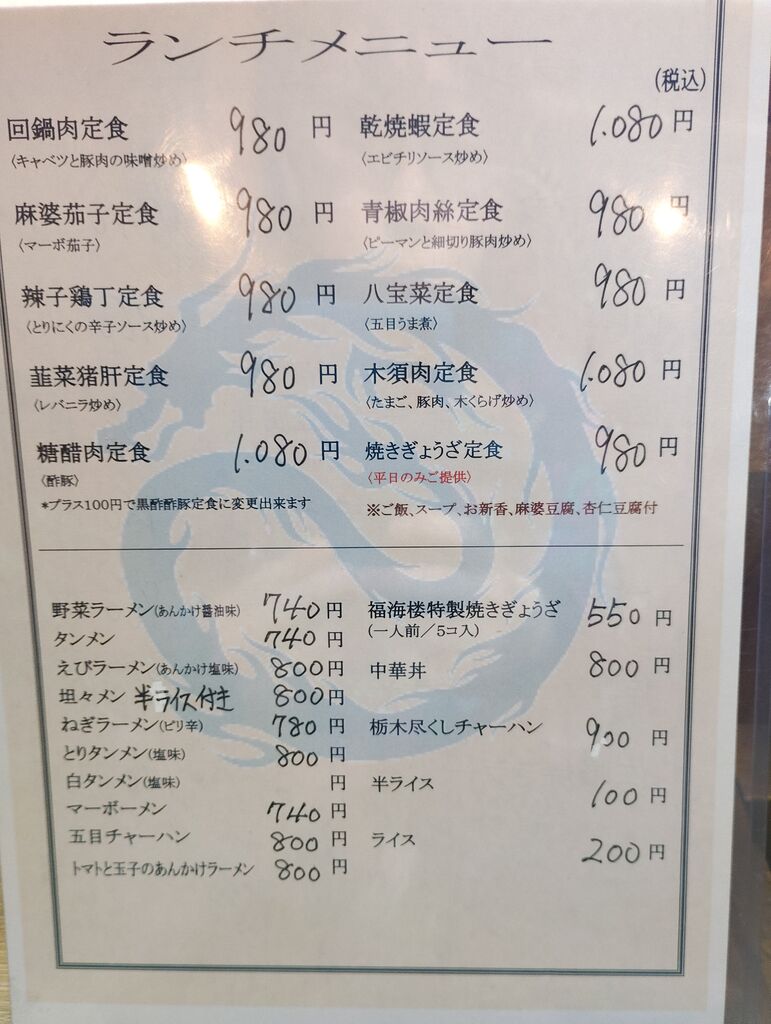 ランチメニュー
(税込)
回鍋肉定食 980 円
〈キャベツと豚肉の味噌炒め〉
麻婆茄子定食 980 円
〈マーボ茄子〉
辣子鶏丁定食 980 円
〈とりにくの辛子ソース炒め〉
韮菜猪肝定食 980 円
〈レバニラ炒め〉
糖醋肉定食 1.080 円
〈酢豚〉
*プラス100円で黒酢酢豚定食に変更出来ます
乾焼蝦定食 1.080 円
〈エビチリソース炒め〉
青椒肉絲定食 980 円
〈ピーマンと細切り豚肉炒め〉
八宝菜定食 980 円
〈五目うま煮〉
木須肉定食 1.080 円
〈たまご、豚肉、木くらげ炒め〉
焼きぎょうざ定食 980 円
〈平日のみご提供〉
※ご飯、スープ、お新香、麻婆豆腐、杏仁豆腐付
野菜ラーメン(あんかけ醤油味) 740 円
タンメン 740 円
えびラーメン(あんかけ塩味) 800 円
坦々メン 半ライス付き 800 円
ねぎラーメン(ピリ辛) 780 円
とりタンメン(塩味) 800 円
白タンメン(塩味) 円
マーボーメン 740 円
五目チャーハン 800 円
トマトと玉子のあんかけラーメン 800 円
福海楼特製焼きぎょうざ 550 円
(一人前/5コ入)
中華丼 800 円
栃木尽くしチャーハン 900 円
半ライス 100 円
ライス 200 円